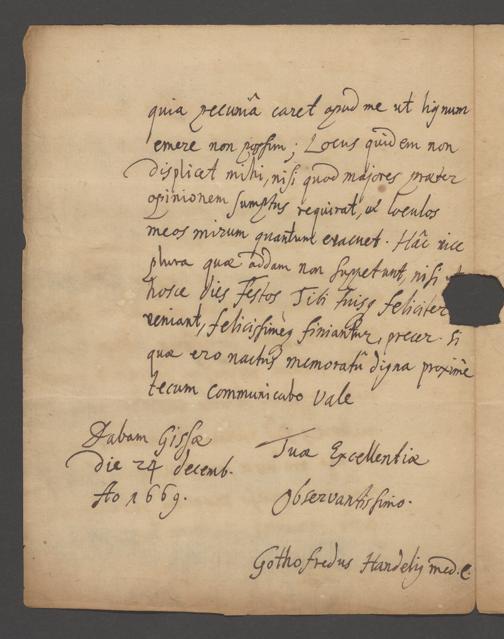 quia pecuniâ caret apud me ut lignum
emere non possim; Locus quidem non
displicet mihi, nisi quod majores præter
opinionem sumptus requirat, et loculos
meos mirum quantum evacuet. Hâc vice
plura quæ addam non suppetunt, nisi ut
hosce dies festos Tibi Tuisq feliciter
veniant, felicissimeq finiantur, precer. Si
quæ ero nactus memoratu digna proximè
tecum communicabo Vale
Dabam Gissæ
die 24 decemb.
Ao 1669.
Tuæ Excellentiæ
Observantissimo.
Gothofredus Handelij med.